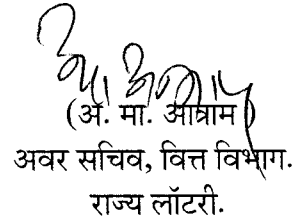 (अ. मा. आत्राम)
अवर सचिव, वित्त विभाग.
राज्य लॉटरी.